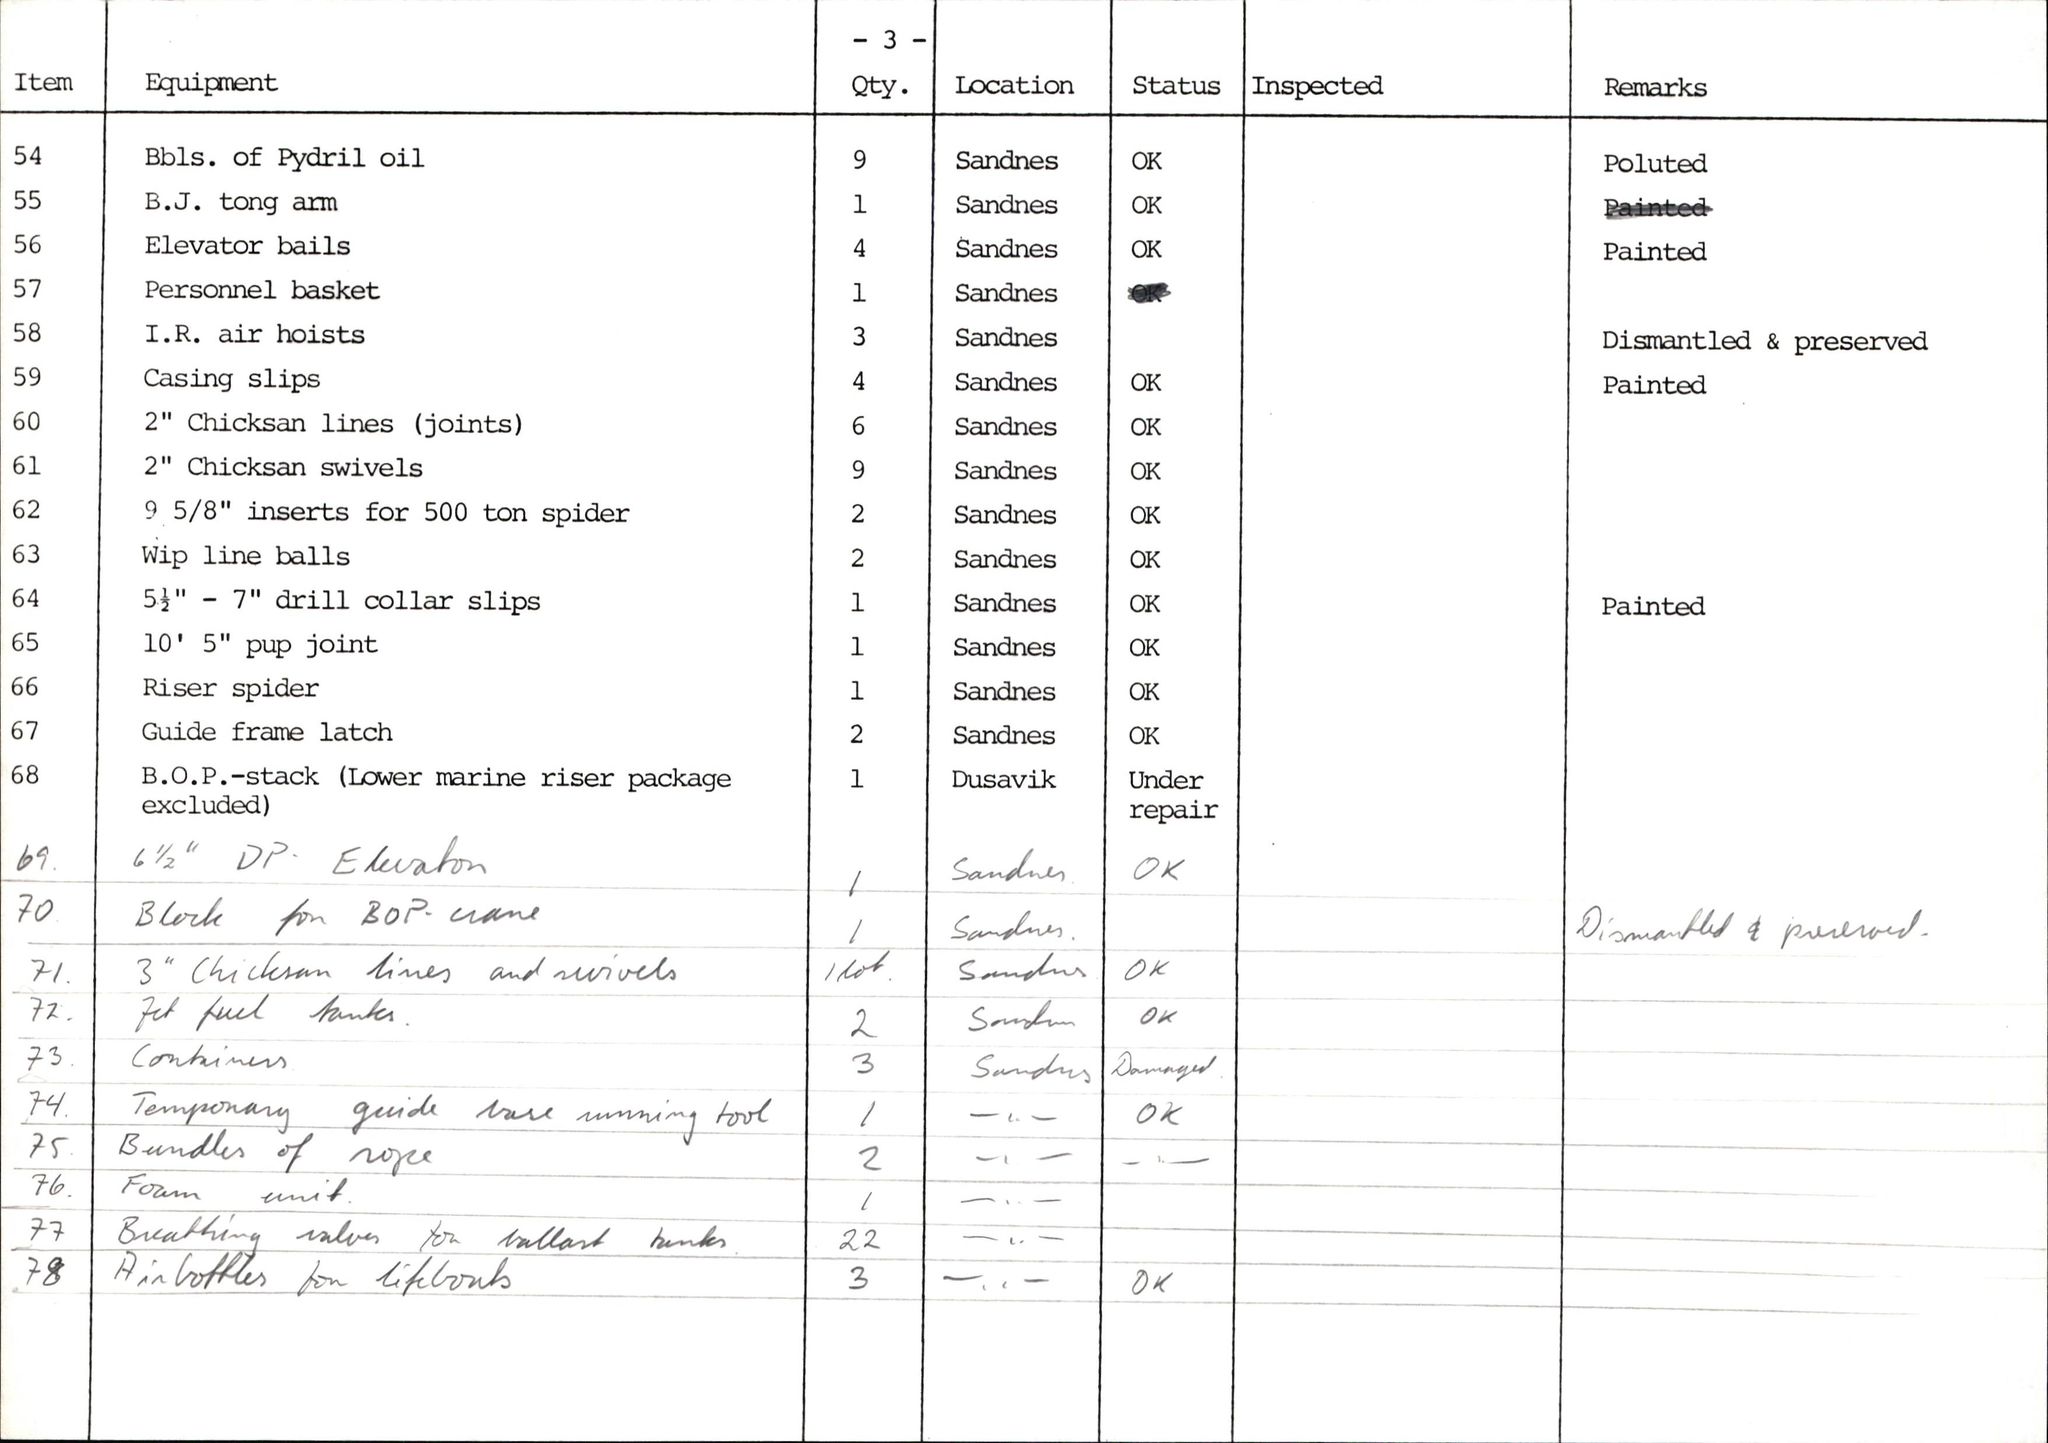 - 3 -
Item Equipment Qty. Location Status Inspected Remarks
54 Bbls. of Pydril oil 9 Sandnes OK Poluted
55 B.J. tong arm 1 Sandnes OK Painted
56 Elevator bails 4 Sandnes OK Painted
57 Personnel basket 1 Sandnes OK
58 I.R. air hoists 3 Sandnes Dismantled & preserved
59 Casing slips 4 Sandnes OK Painted
60 2" Chicksan lines (joints) 6 Sandnes OK
61 2" Chicksan swivels 9 Sandnes OK
62 9 5/8" inserts for 500 ton spider 2 Sandnes OK
63 Wip line balls 2 Sandnes OK
64 5½" - 7" drill collar slips 1 Sandnes OK Painted
65 10' 5" pup joint 1 Sandnes OK
66 Riser spider 1 Sandnes OK
67 Guide frame latch 2 Sandnes OK
68 B.O.P.-stack (Lower marine riser package 1 Dusavik Under
excluded) repair
69. 6½" DP. Elevator 1 Sandnes. OK
70 Block for BOP-crane 1 Sandnes. Dismantled & preserved.
71. 3" Chicksan lines and swivels 1 lot. Sandnes OK
72. Jet fuel tanks. 2 Sandnes OK
73. Containers 3 Sandnes Damaged.
74. Temporary guide base running tool 1 —"— OK
75. Bundles of rope 2 —"— —"—
76. Foam unit. 1 —"—
77 Breathing valves for ballast tanks. 22 —"—
78 Airbottles for lifeboats 3 —"— OK